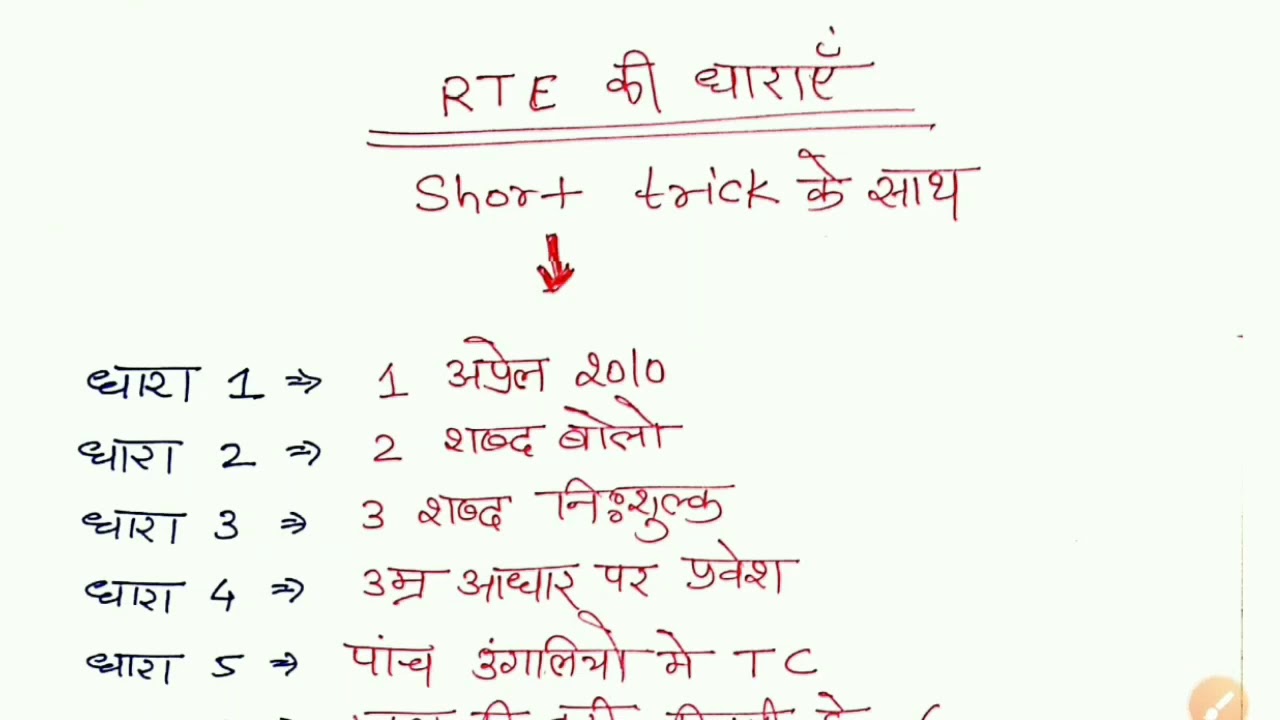 RTE की धाराएँ
Short trick के साथ
धारा 1 ⇒ 1 अप्रेल 2010
धारा 2 ⇒ 2 शब्द बोलो
धारा 3 ⇒ 3 शब्द निःशुल्क
धारा 4 ⇒ उम्र आधार पर प्रवेश
धारा 5 ⇒ पांच उंगलियो मे TC